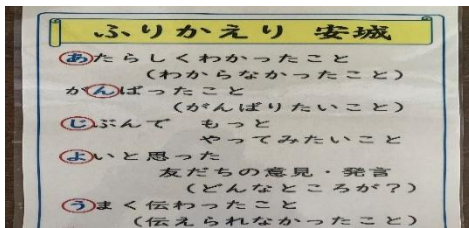 ふりかえり 安城
あたらしくわかったこと
(わからなかったこと)
がんばったこと
(がんばりたいこと)
じぶんで もっと
やってみたいこと
よいと思った
友だちの意見・発言
(どんなところが?)
うまく伝わったこと
(伝えられなかったこと)